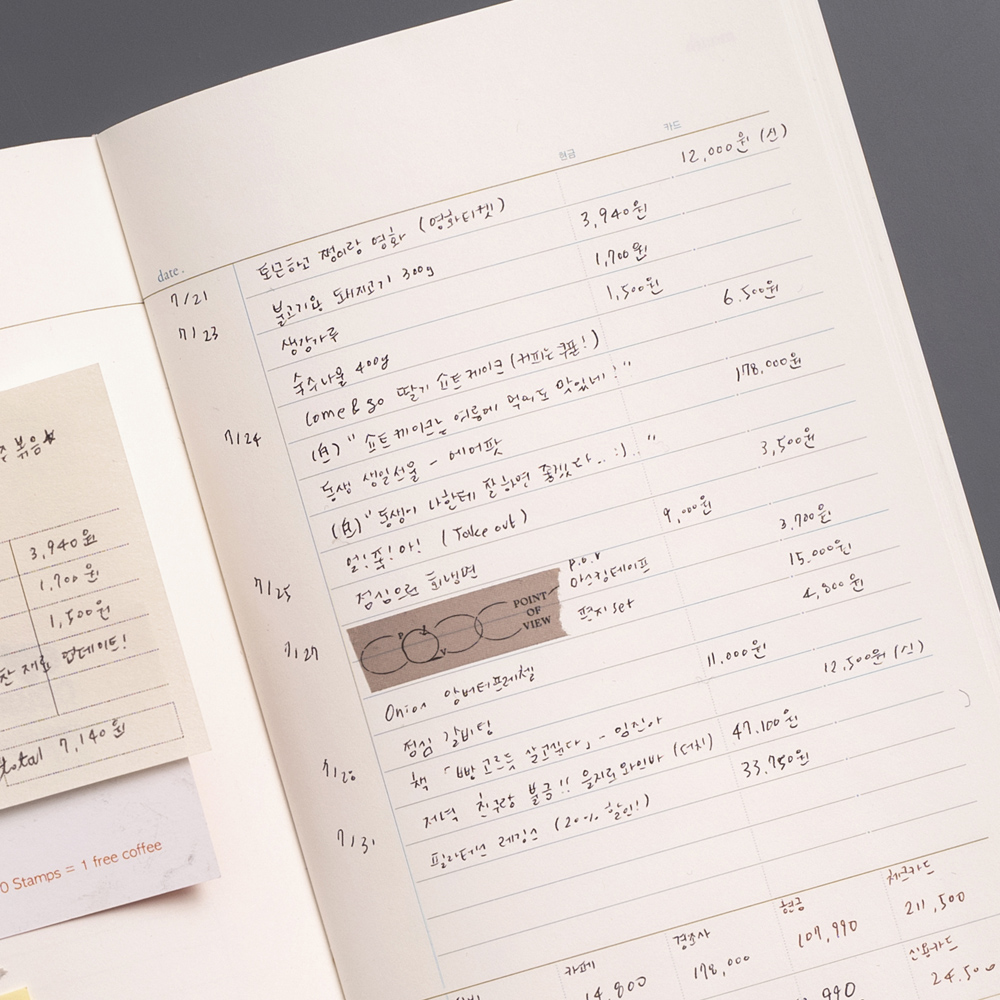 주 볶음★
3,940원
1,700원
1,500원
찬 재료 업데이트!
total 7,140원
0 Stamps = 1 free coffee
date.
현금
카드
7/21 퇴근하고 쩡이랑 영화 (영화티켓) 12,000원 (신)
7/23 불고기용 돼지고기 300g 3,940원
생강가루 1,700원
숙주나물 400g 1,500원
7/24 Come & go 딸기 쇼트케이크 (커피는 쿠폰!) 6.500원
" 쇼트케이크는 여름에 먹어도 맛있네!"
동생 생일선물 - 에어팟 178.000원
" 동생이 나한테 잘하면 좋겠다.. :).. "
7/25 얼!죽!아! (Take out) 3,500원
점심으론 회냉면 9,000원
7/27 POINT OF VIEW
p.o.v
마스킹테이프 3.700원
편지 set 15.000원
Onion 앙버터프레첼 4,800원
점심 갈비탕 11.000원
책 「빵 고르듯 살고싶다」 - 임진아 12,500원 (신)
저녁 친구랑 불금!! 을지로와이바 (더치) 47,100원
7/31 필라테스 레깅스 (20% 할인!) 33.750원
카페 14,800
경조사 178,000
현금 107,990
체크카드 211,500
신용카드 24.500
990